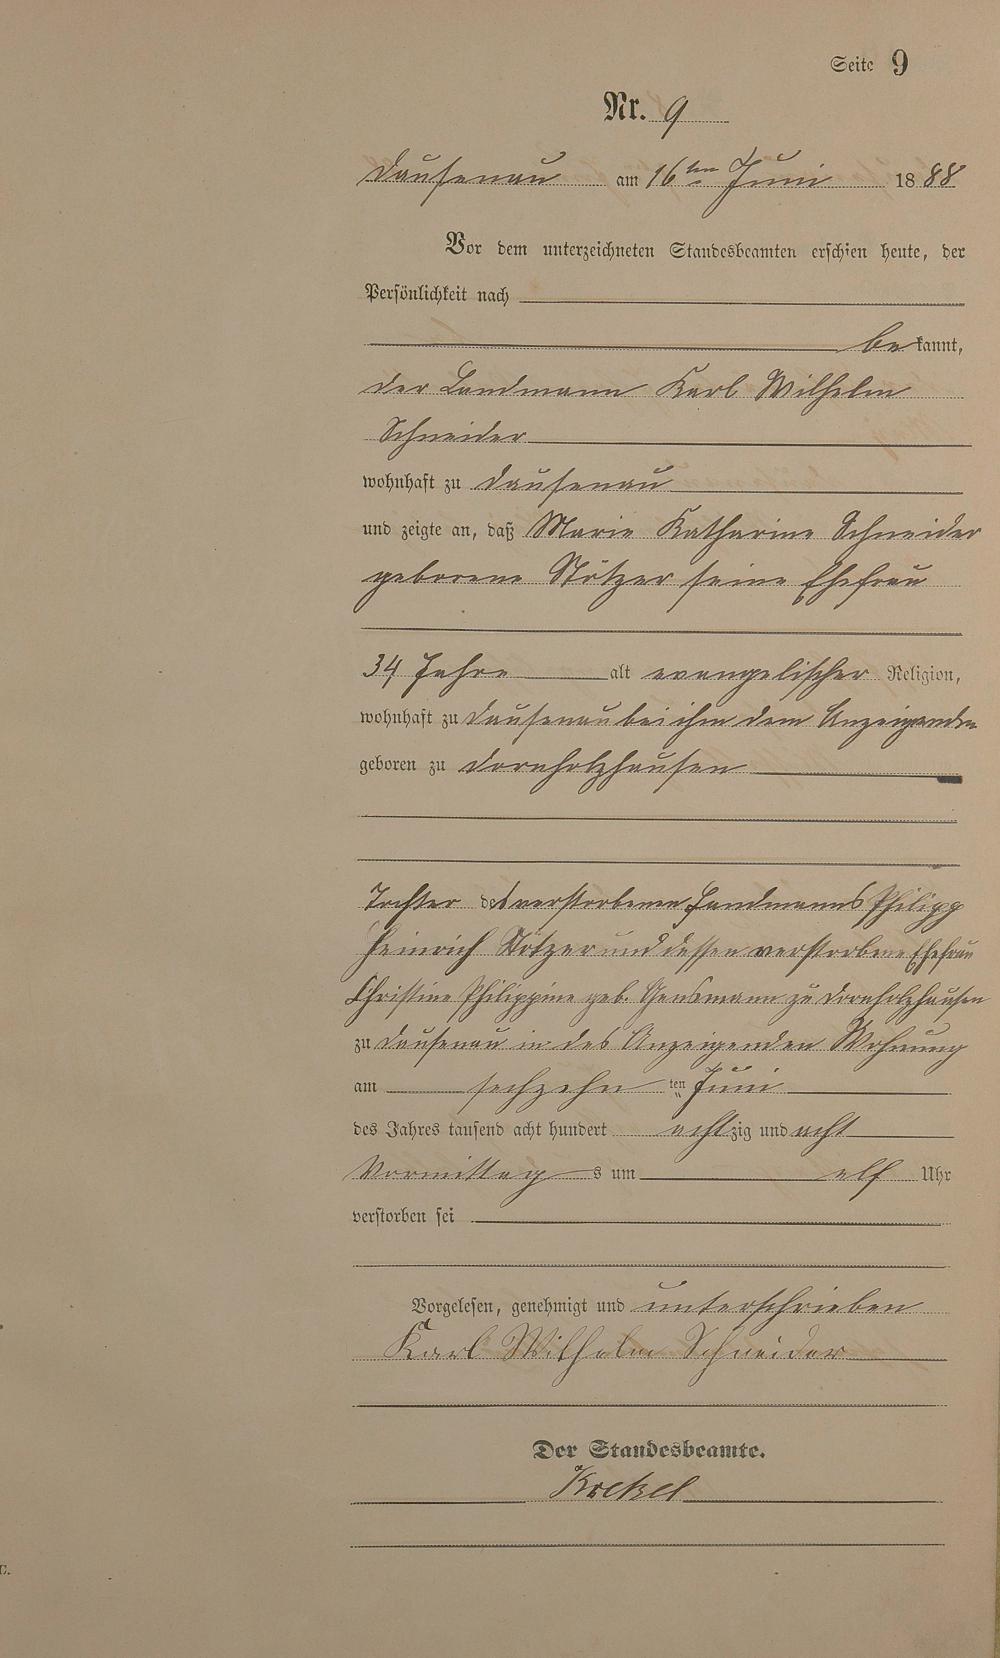 Seite 9
Nr. 9
Dausenau am 16ten Juni 1888
Vor dem unterzeichneten Standesbeamten erschien heute, der
Persönlichkeit nach
bekannt,
der Landmann Karl Wilhelm
Schneider
wohnhaft zu Dausenau
und zeigte an, daß Marie Katharine Schneider
geborene Stötzer seine Ehefrau
34 Jahre alt evangelischer Religion,
wohnhaft zu Dausenau bei ihm dem Anzeigenden
geboren zu Dornholzhausen
Tochter des verstorbenen Landmanns Philipp
Heinrich Stötzer und dessen verstorbene Ehefrau
Christine Philippine geb. zu Dornholzhausen
zu Dausenau in des Anzeigenden Wohnung
am sechzehn ten Juni
des Jahres tausend acht hundert achtzig und acht
Vormittags um elf Uhr
verstorben sei
Vorgelesen, genehmigt und unterschrieben
Karl Wilhelm Schneider
Der Standesbeamte.
C.